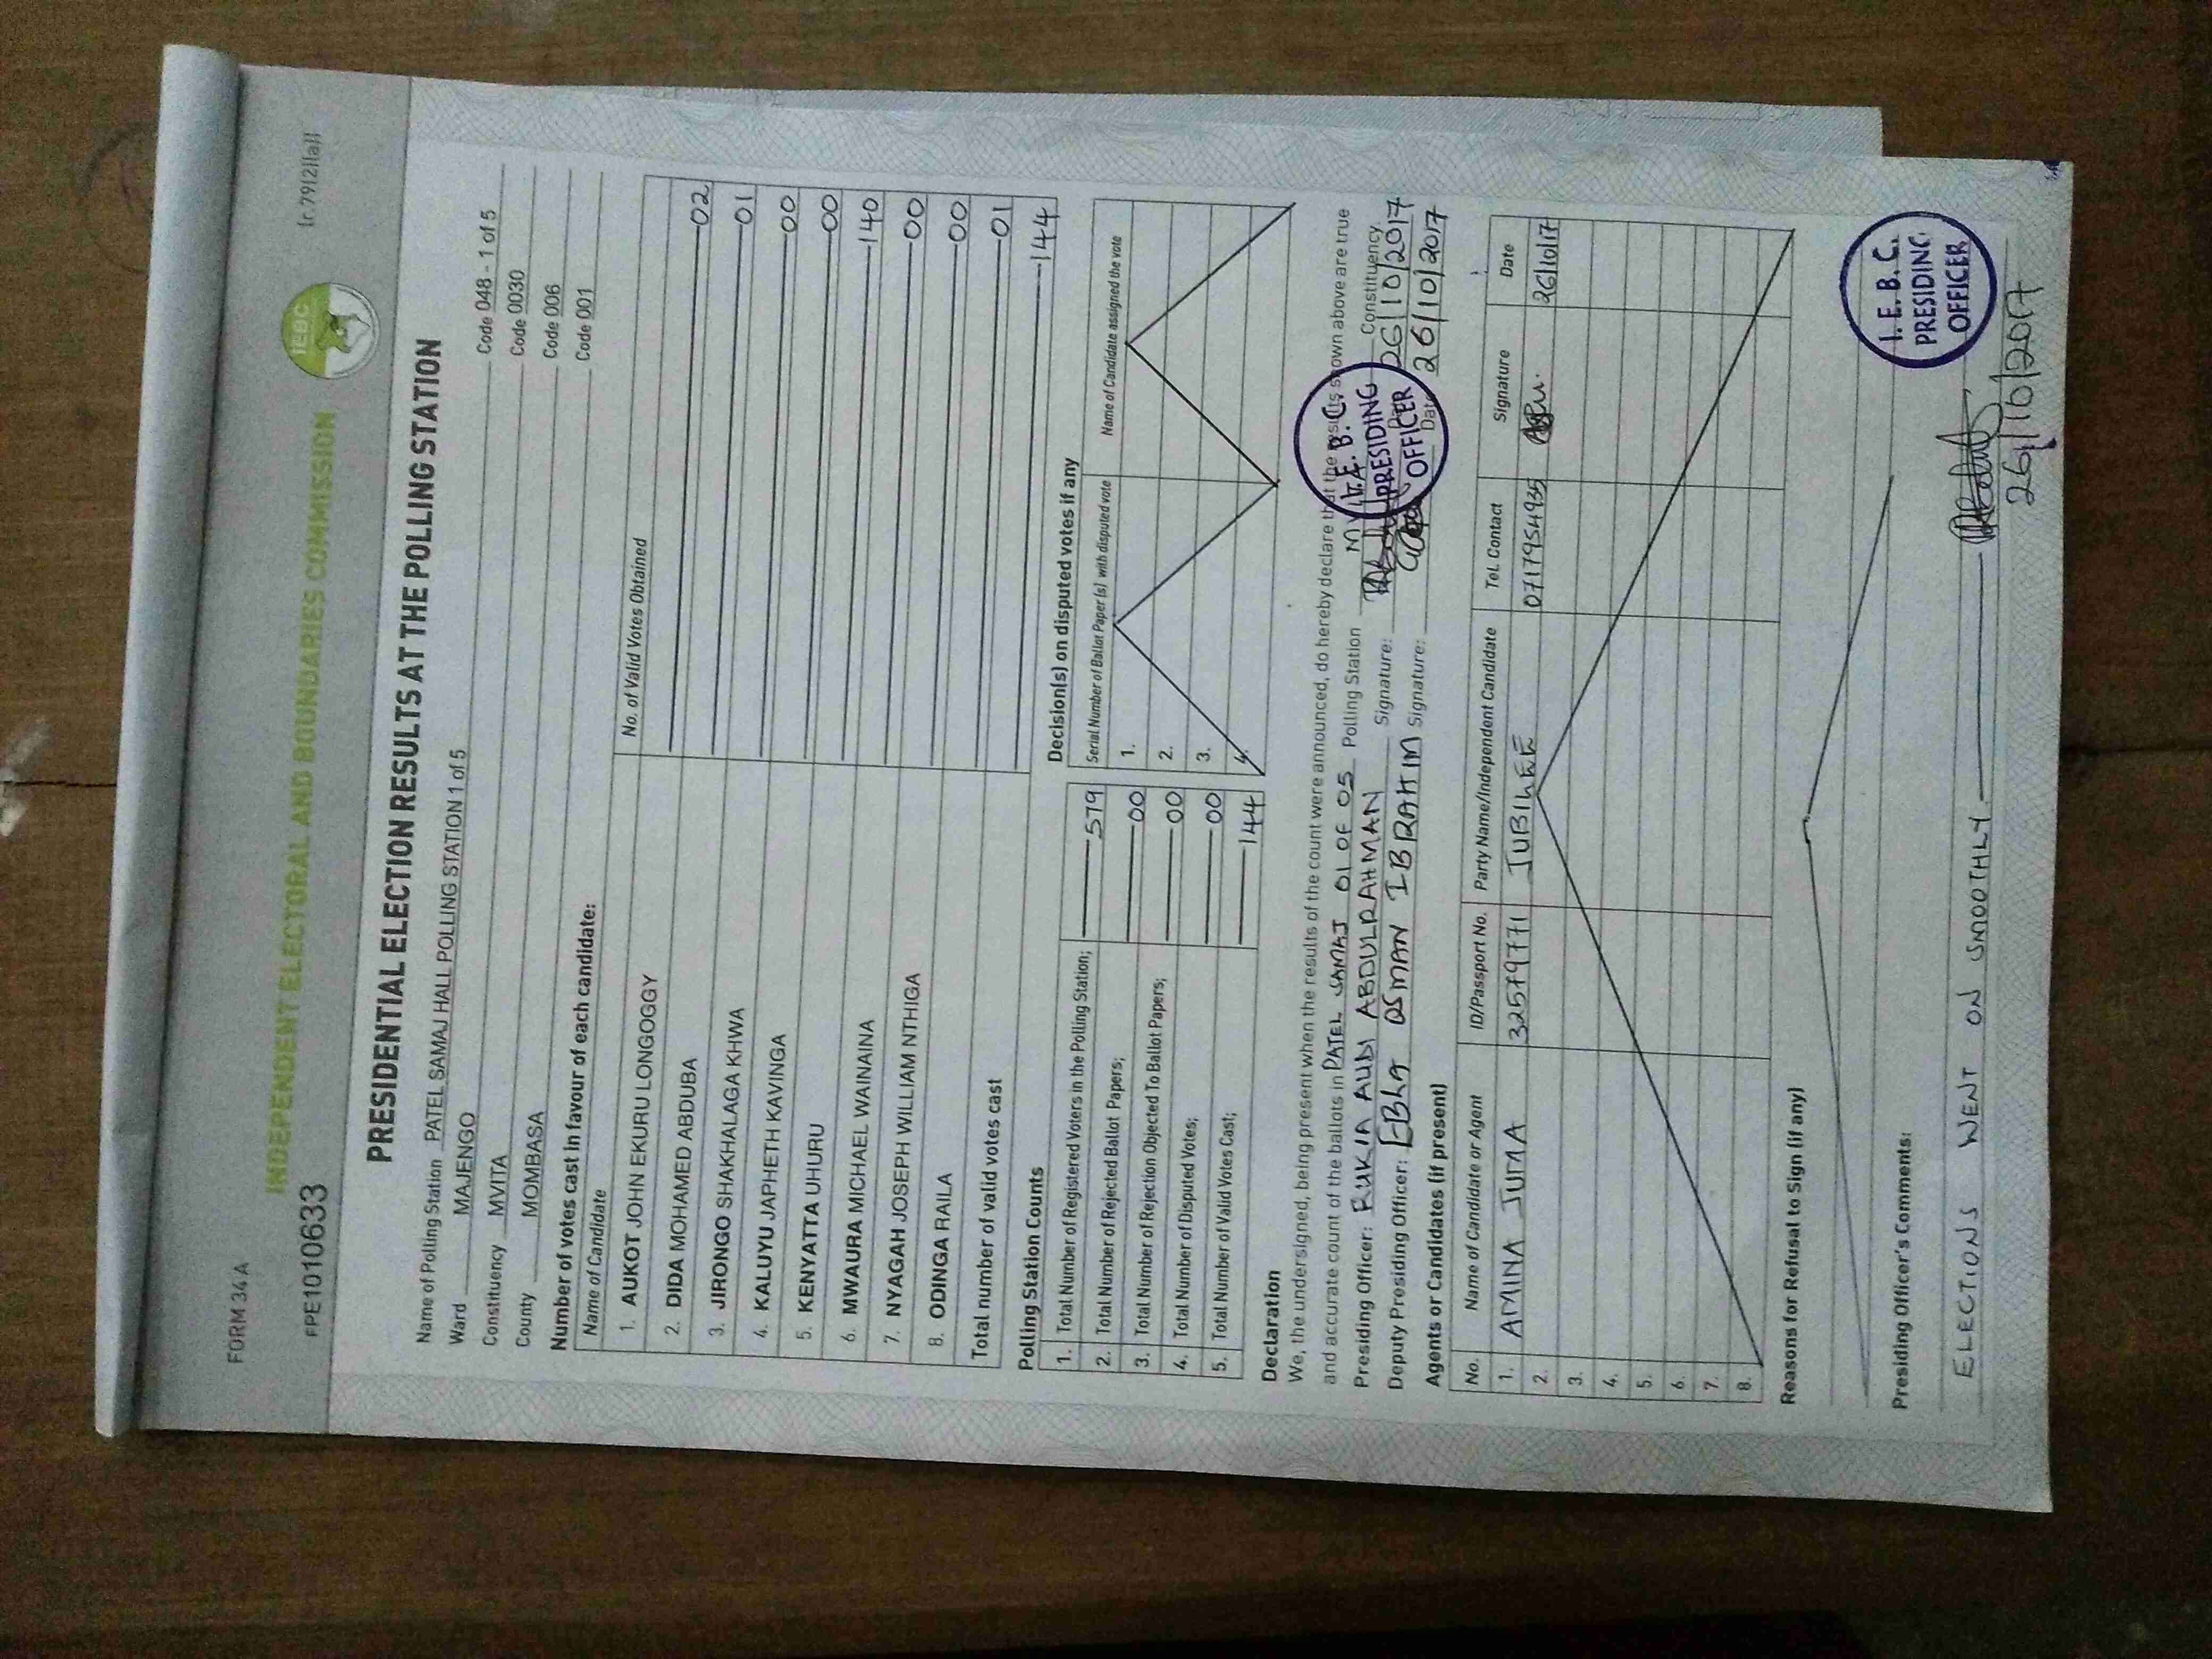 FORM 34 A
FPE1010633
INDEPENDENT ELECTORAL AND BOUNDARIES COMMISSION
IEBC
(r.79(2)(a))
PRESIDENTIAL ELECTION RESULTS AT THE POLLING STATION
Name of Polling Station PATEL SAMAJ HALL POLLING STATION 1 of 5 Code 048 - 1 of 5
Ward MAJENGO Code 0030
Constituency MVITA Code 006
County MOMBASA Code 001
Number of votes cast in favour of each candidate:
Name of Candidate No. of Valid Votes Obtained
1. AUKOT JOHN EKURU LONGOGGY 02
2. DIDA MOHAMED ABDUBA 01
3. JIRONGO SHAKHALAGA KHWA 00
4. KALUYU JAPHETH KAVINGA 00
5. KENYATTA UHURU 140
6. MWAURA MICHAEL WAINAINA 00
7. NYAGAH JOSEPH WILLIAM NTHIGA 00
8. ODINGA RAILA 01
Total number of valid votes cast 144
Polling Station Counts
1. Total Number of Registered Voters in the Polling Station; 579
2. Total Number of Rejected Ballot Papers; 00
3. Total Number of Rejection Objected To Ballot Papers; 00
4. Total Number of Disputed Votes; 00
5. Total Number of Valid Votes Cast; 144
Decision(s) on disputed votes if any
Serial Number of Ballot Paper (s) with disputed vote Name of Candidate assigned the vote
1.
2.
3.
4.
Declaration
We, the undersigned, being present when the results of the count were announced, do hereby declare that the results shown above are true
and accurate count of the ballots in PATEL SAMAJ 01 OF 05 Polling Station Constituency
Presiding Officer: RUKIA AUDI ABDULRAHMAN Signature: 26/10/2017
Deputy Presiding Officer: EBLA OSMAN IBRAHIM Signature: Date 26/10/2017
I. E. B. C.
PRESIDING
OFFICER
Agents or Candidates (if present)
No. Name of Candidate or Agent ID/Passport No. Party Name/Independent Candidate Tel. Contact Signature Date
1. AMINA JUMA 32579771 JUBILEE 0717954935 26/10/17
2.
3.
4.
5.
6.
7.
8.
Reasons for Refusal to Sign (if any)
Presiding Officer's Comments:
ELECTIONS WENT ON SMOOTHLY.
26/10/2017
I. E. B. C.
PRESIDING
OFFICER